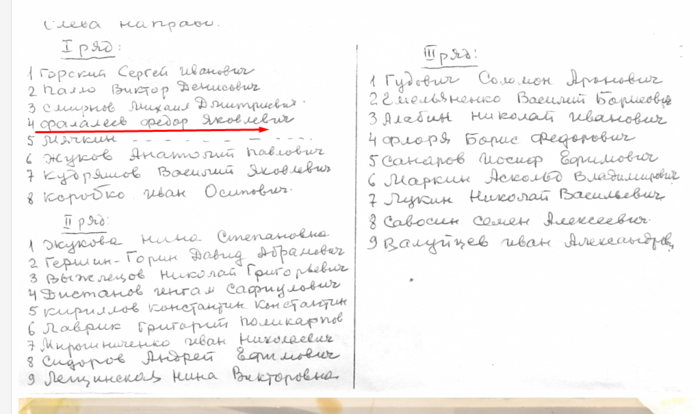 Слева направо.
I ряд:
1 Горский Сергей Иванович
2 Палло Виктор Денисович
3 Смирнов Михаил Дмитриевич.
4 Фалалеев Федор Яковлевич
5 Мячкин
6 Жуков Анатолий Павлович
7 Кудряшов Василий Яковлевич
8 Коробко Иван Осипович.
II ряд:
1 Жукова Нина Степановна
2 Гершин-Горин Давид Абрамович
3 Выжлецов Николай Григорьевич
4 Дистанов Ингам Сафиулович
5 Кириллов Константин Константин
6 Лаврик Григорий Поликарпов
7 Мирошниченко Иван Николаевич
8 Сидоров Андрей Ефимович
9 Лещинская Нина Викторовна
III ряд:
1 Гудович Соломон Аронович
2 Емельяненко Василий Борисович
3 Алабин Николай Иванович
4 Флоря Борис Федорович
5 Санаров Иосиф Ефимович
6 Маркин Аскольд Владимирович
7 Лукин Николай Васильевич
8 Савосин Семен Алексеевич
9 Валуйцев Иван Александров